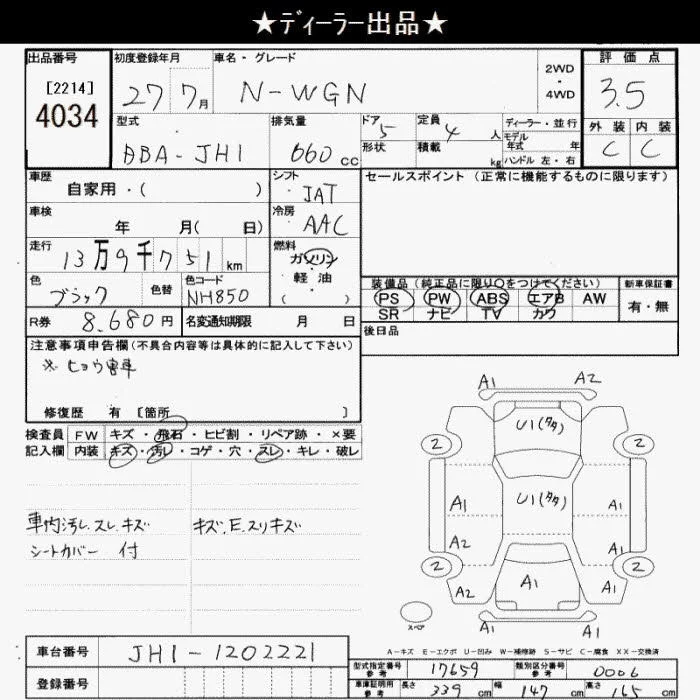 ★ディーラー出品★
出品番号 初度登録年月 車名・グレード 2WD ・ 4WD 評価点
[2214] 27 7月 N-WGN 3.5
4034 型式 排気量 ドア 定員 ディーラー・並行 外装 内装
DBA-JH1 660cc 5 4人 モデル年式 年 C C
形状 積載 kg ハンドル 左・右
車歴 シフト セールスポイント(正常に機能するものに限ります)
自家用・( ) IAT
車検 冷房
年 月( 日) AAC
走行 燃料
13万9千751km ガソリン・軽油
( )
色 色替 色コード 装備品(純正品に限り〇をつけてください) 新車保証書
ブラック NH850 PS PW ABS エアB AW 有・無
SR ナビ TV カワ
R券 8,680円 名変通知期限 月 日 後日品
注意事項申告欄(不具合内容等は具体的に記入して下さい)
※ヒョウ害車
修復歴 有 [箇所 ]
検査員 FW キズ・飛石・ヒビ割・リペア跡・×要
記入欄 内装 キズ・汚レ・コゲ・穴・スレ・キレ・破レ
A1 A2
U1(タタ)
2 2
U1(タタ)
A1 A1
A2 A1
2 2
A2 A1 A1
A1 A1
スペア
車内汚レ.スレ.キズ キズ.E.スリキズ
シートカバー 付
A-キズ E-エクボ U-凹み W-補修跡 S-サビ C-腐食 XX-交換済
車台番号 JH1-1202221
登録番号
型式指定番号 参考 17659 類別区分番号 参考 0006
車庫証明用 参考 長さ 339cm 幅 147cm 高さ 165cm